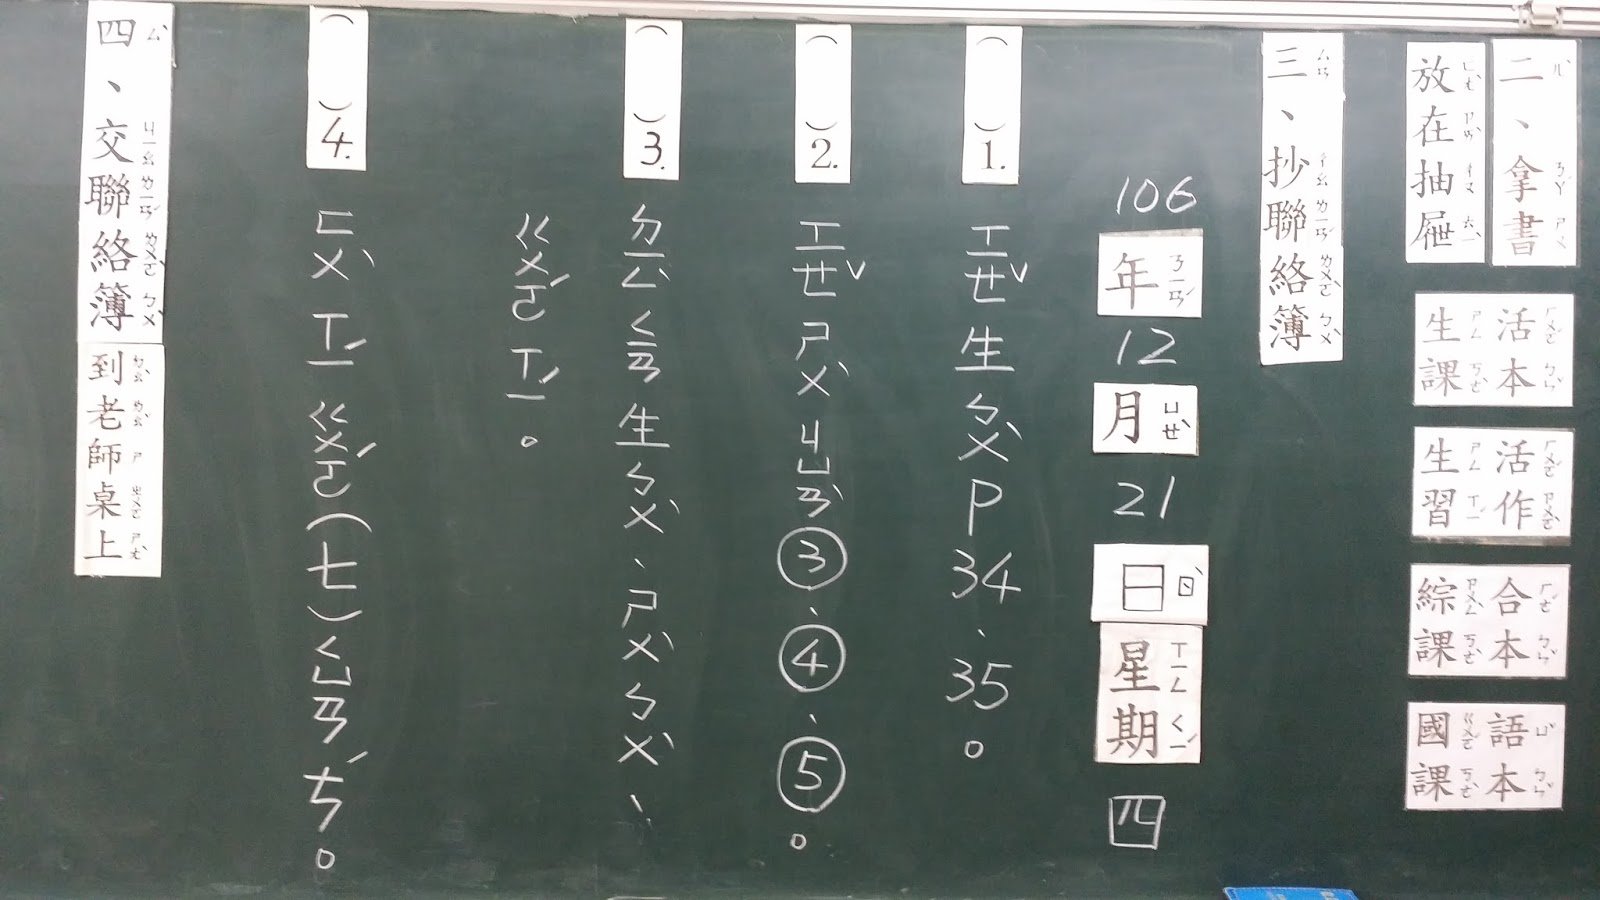 二、拿書
放在抽屜
生活
課本
生活
習作
綜合
課本
國語
課本
三、抄聯絡簿
106年12月21日星期四
( )1.ㄒㄧㄝˇ生ㄅㄨˋP34、35。
( )2.ㄒㄧㄝˇㄕㄨˋㄐㄩㄢˋ③、④、⑤。
( )3.ㄉㄧㄥㄑㄧㄢ生ㄅㄨˋ、ㄕㄨˋㄅㄨˋ、
ㄍㄨㄛˊㄒㄧˊ。
( )4.ㄈㄨˋㄒㄧˊㄍㄨㄛˊ(七)ㄑㄩㄢˊㄘ。
四、交聯絡簿
到老師桌上